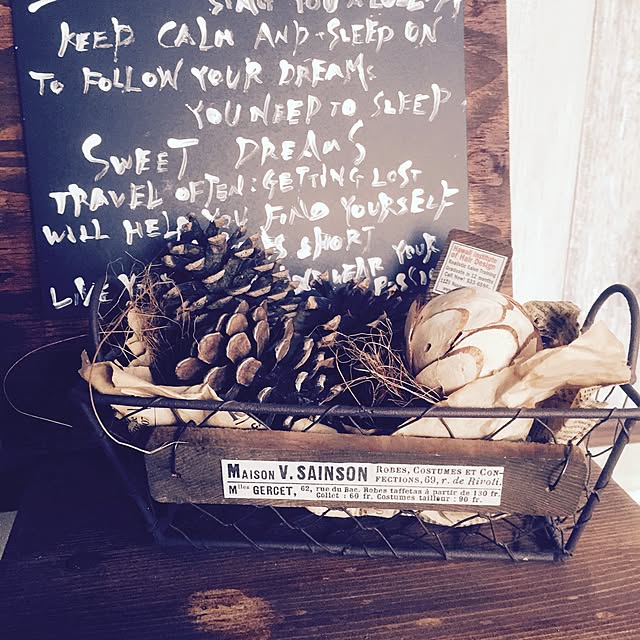 KEEP CALM AND SLEEP ON
TO FOLLOW YOUR DREAMS
YOU NEED TO SLEEP
SWEET DREAMS
TRAVEL OFTEN: GETTING LOST
WILL HELP YOU FIND YOURSELF
SHORT
LIVE YOUR
of Hair Design
Realistic Salon Training
Graduate in 12 months
Call Now!
MAISON V. SAINSON
ROBES, COSTUMES ET CON-
FECTIONS, 69, r. de Rivoli.
Mlles GERCET, 62, rue du Bac. Robes taffetas à partir de 130 fr.
Collet : 60 fr. Costumes tailleur : 90 fr.